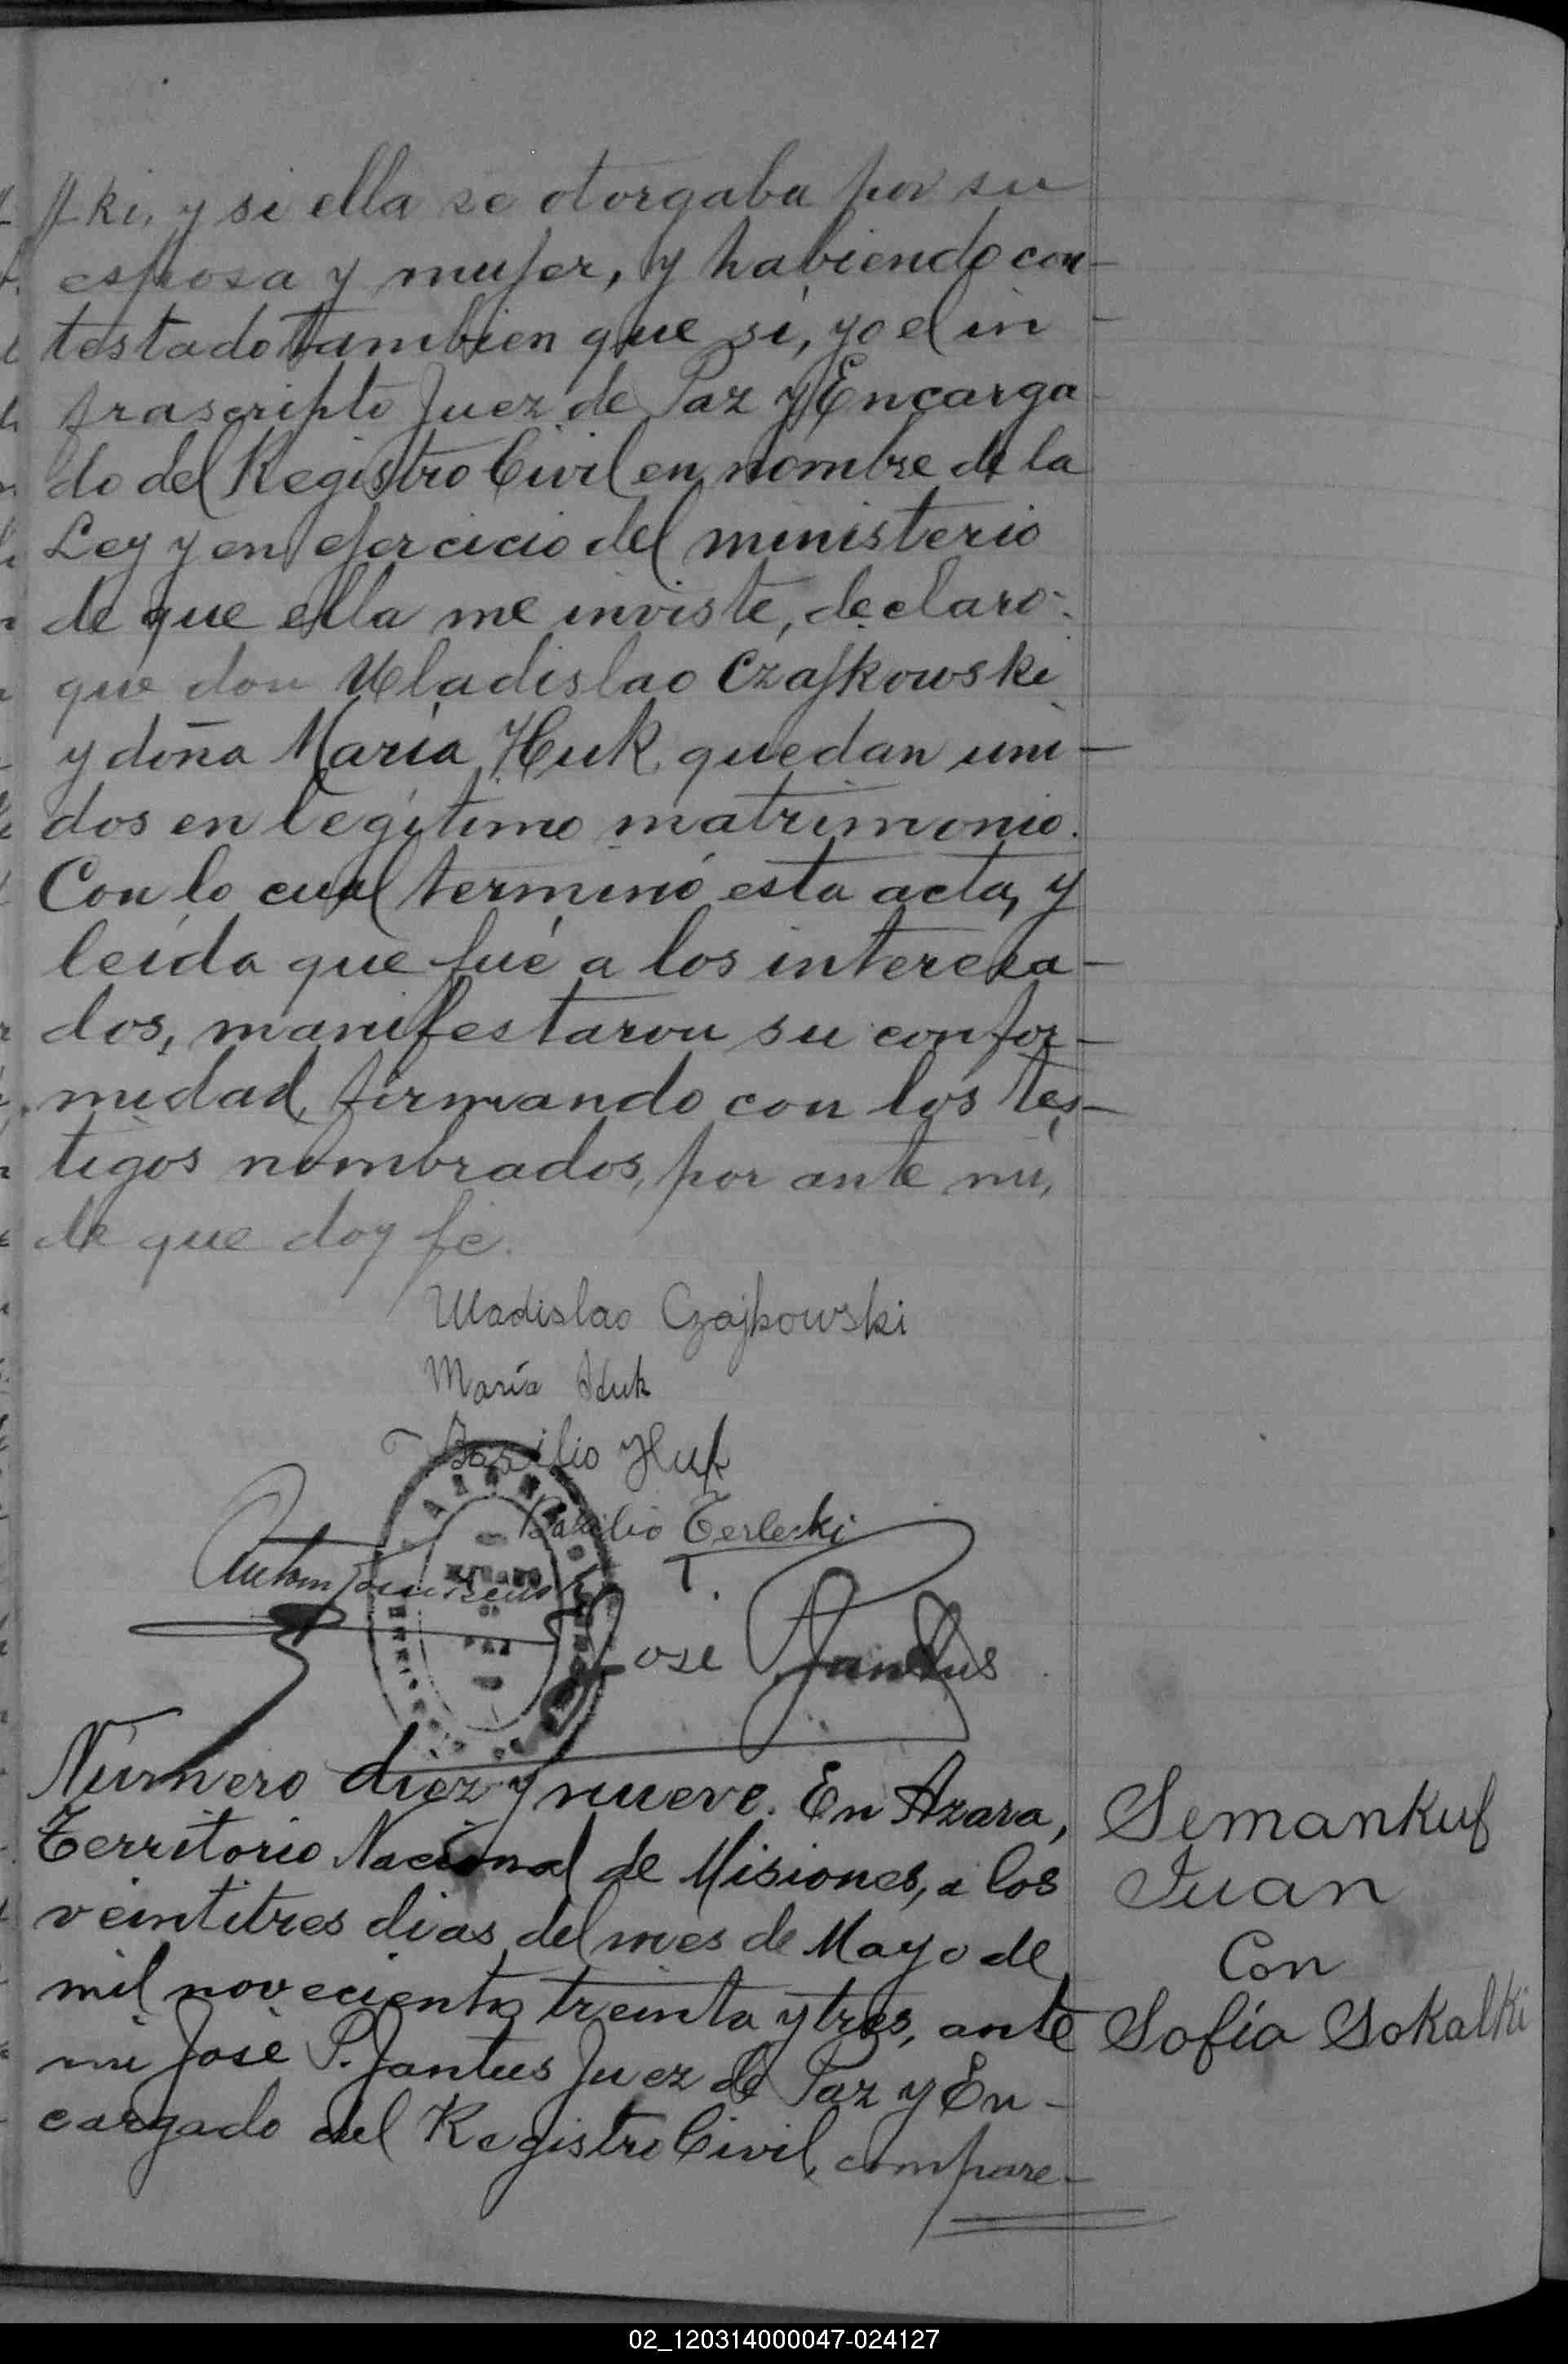 ski, y si ella se otorgaba por su
esposa y mujer, y habiendo con-
testado tambien que si, yo el in
frascripto Juez de Paz y Encarga
do del Registro Civil en nombre de la
Ley y en ejercicio del ministerio
de que ella me inviste, declaro:
que don Uladislao Czajkowski
y doña María Huk quedan uni-
dos en legítimo matrimonio.
Con lo cual terminó esta acta, y
leída que fué a los interesa-
dos, manifestaron su confor-
midad, firmando con los tes-
tigos nombrados, por ante mi,
de que doy fé.
Uladislao Czajkowski
María Huk
Basilio Huk
Basilio Terleski
José Jantus
Número diez y nueve. En Azara,
Territorio Nacional de Misiones, a los
veintitres dias del mes de Mayo de
mil novecientos treinta y tres, ante
mi José P. Jantus Juez de Paz y En-
cargado del Registro Civil, compare-
Semankuf
Juan
Con
Sofía Sokalki
02_120314000047-024127